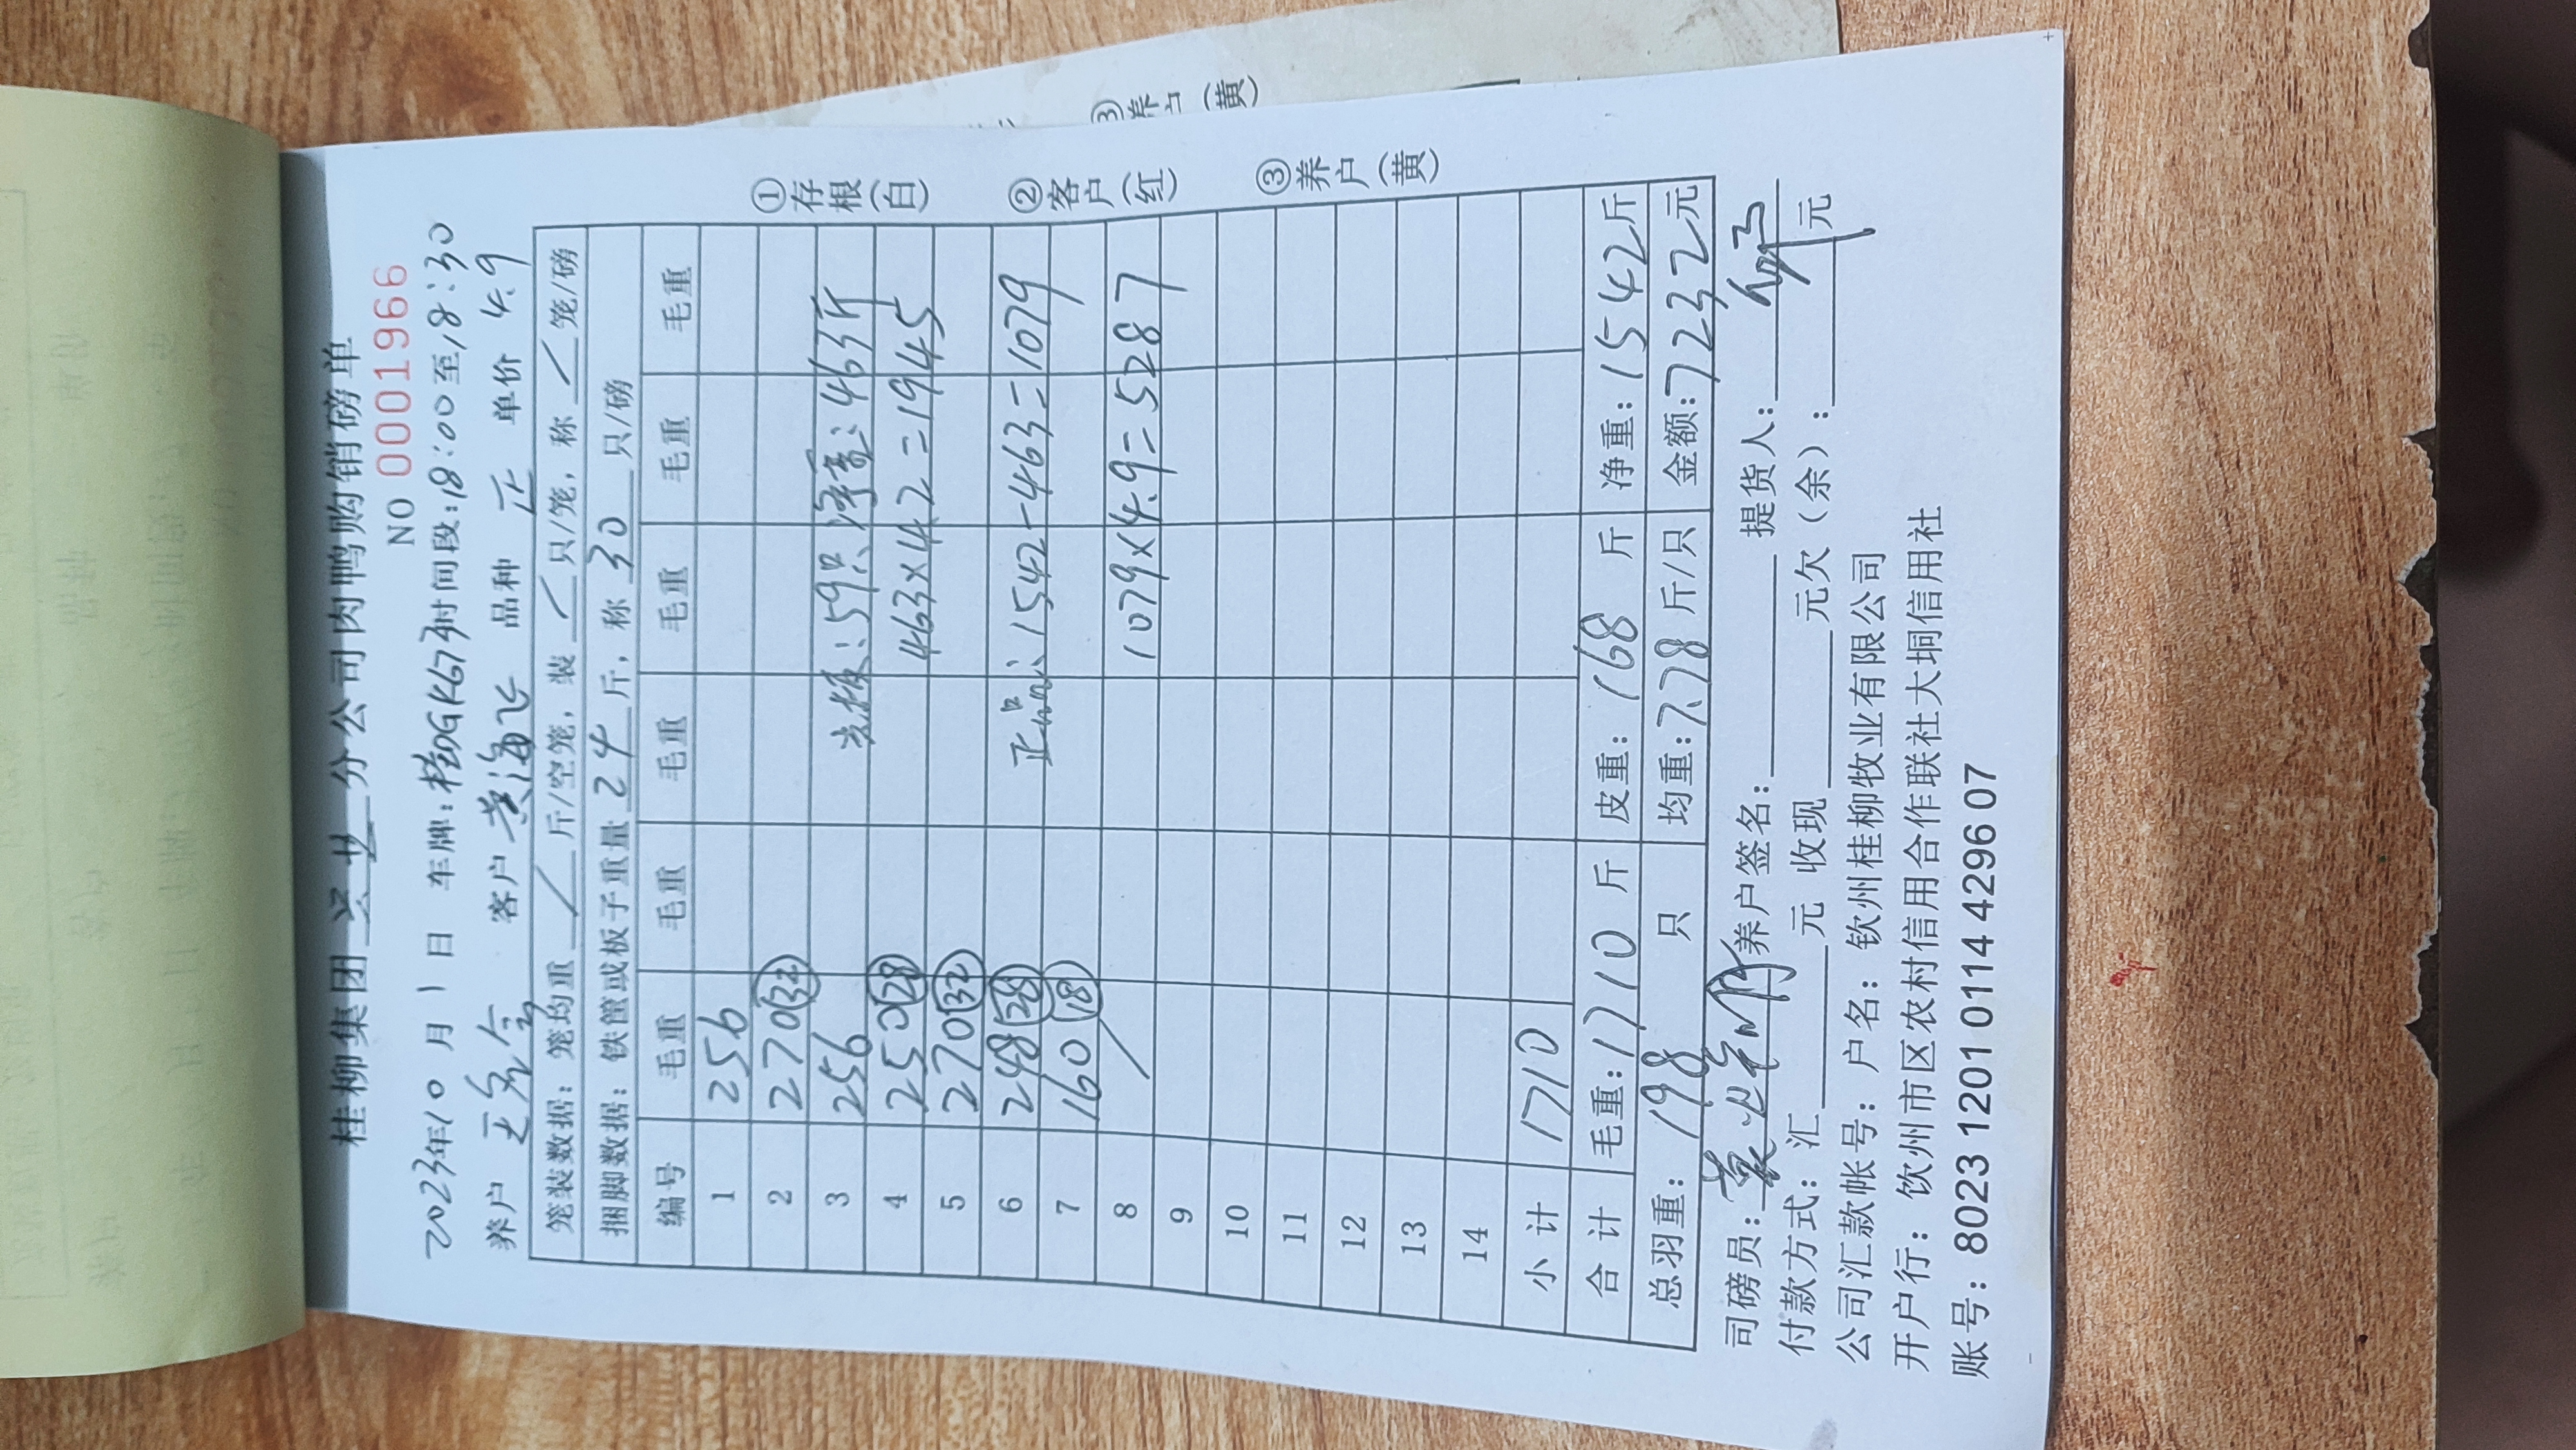 桂柳集团 兴业 分公司肉鸭购销磅单
NO 0001966
2023年10月1日 车牌:桂DGK673时间段:18:00至18:30
养户 客户 黄海飞 品种 正 单价 4.9
笼装数据: 笼均重 / 斤/空笼, 装 / 只/笼, 称 / 笼/磅
捆脚数据: 铁筐或板子重量 24 斤, 称 30 只/磅
编号 毛重 毛重 毛重 毛重 毛重 毛重
1 256
2 270 (32)
3 256 光板:59只 净重:463斤
4 250 (28) 463×4.2=1945
5 270 (32)
6 248 (28) 正品:1542-463=1079
7 160 (18)
8 / 1079×4.9=5287
9
10
11
12
13
14
小计 1710
合计 毛重:1710斤 皮重:168斤 净重:1542斤
总羽重:198只 均重:7.78斤/只 金额:7232元
司磅员: 养户签名: 提货人:
付款方式:汇 元 收现 元欠(余): 元
公司汇款帐号:户名:钦州桂柳牧业有限公司
开户行:钦州市区农村信用合作联社大垌信用社
账号:8023 1201 0114 4296 07
①存根(白)
②客户(红)
③养户(黄)
③养户(黄)